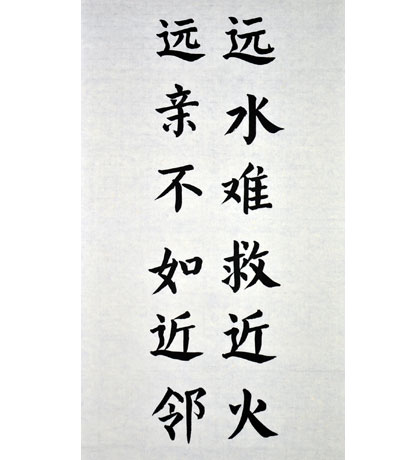 远水难救近火
远亲不如近邻